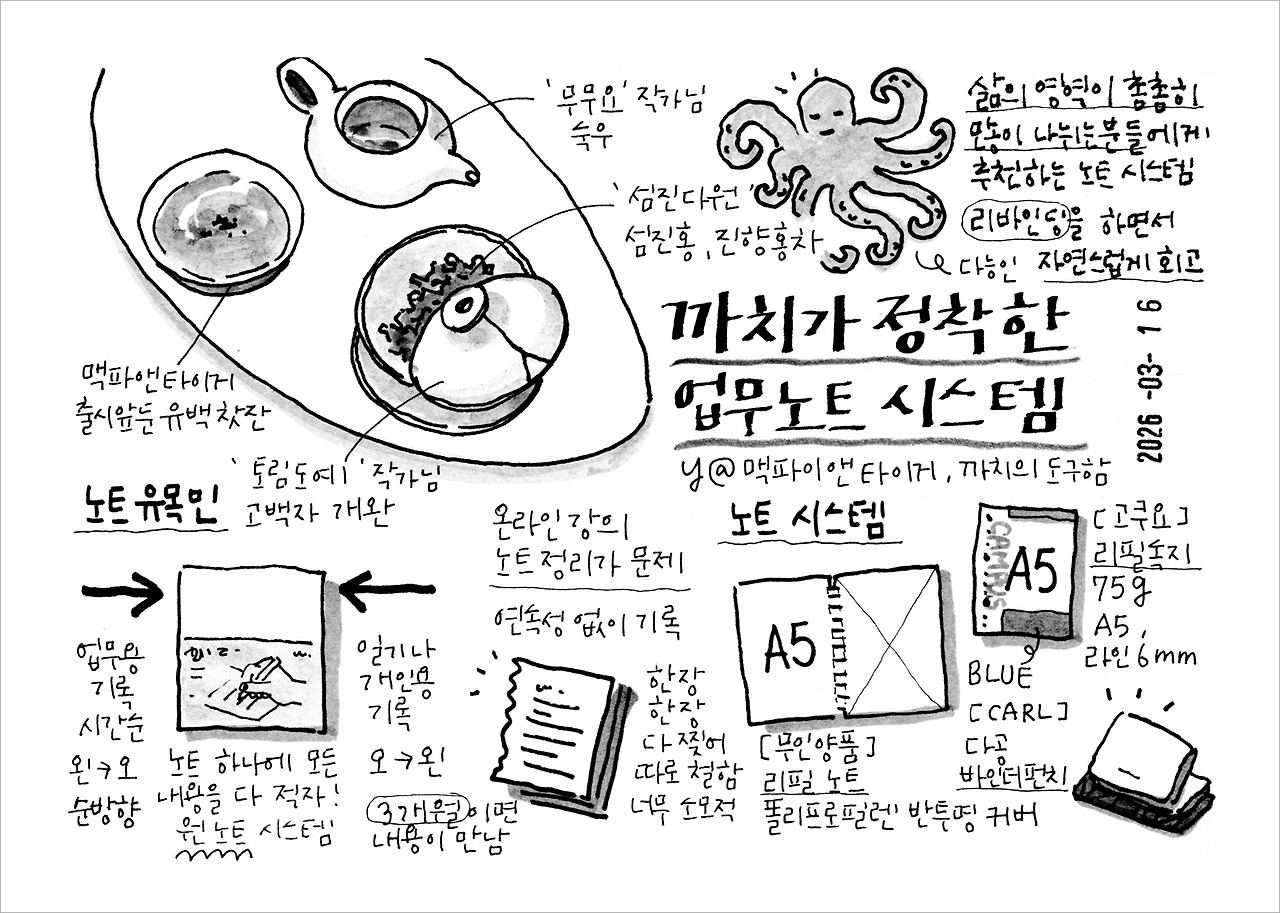 '무무요' 작가님
숙우
'섬진다원'
섬진홍, 진향홍차
맥파앤타이거
출시앞둔 유백 찻잔
'토림도예' 작가님
고백자 개완
삶의 영역이 촘촘히
많이 나뉘는분들에게
추천하는 노트 시스템
리바인딩을 하면서
다능인 자연스럽게 회고
까치가 정착한
업무노트 시스템
2026-03-16
y@맥파이앤타이거, 까치의 도구함
노트유목민
업무용
기록
시간순
왼→오
순방향
노트 하나에 모든
내용을 다 적자!
원노트 시스템
일기나
개인용
기록
오→왼
3개월이면
내용이 만남
온라인강의
노트정리가 문제
연속성 없이 기록
한장
한장
다 찢어
따로 철함
너무 소모적
노트 시스템
A5
[무인양품]
리필 노트
폴리프로필렌 반투명 커버
CAMPUS
A5
[고쿠요]
리필속지
75g
A5,
라인 6mm
BLUE
[CARL]
다공
바인더펀치